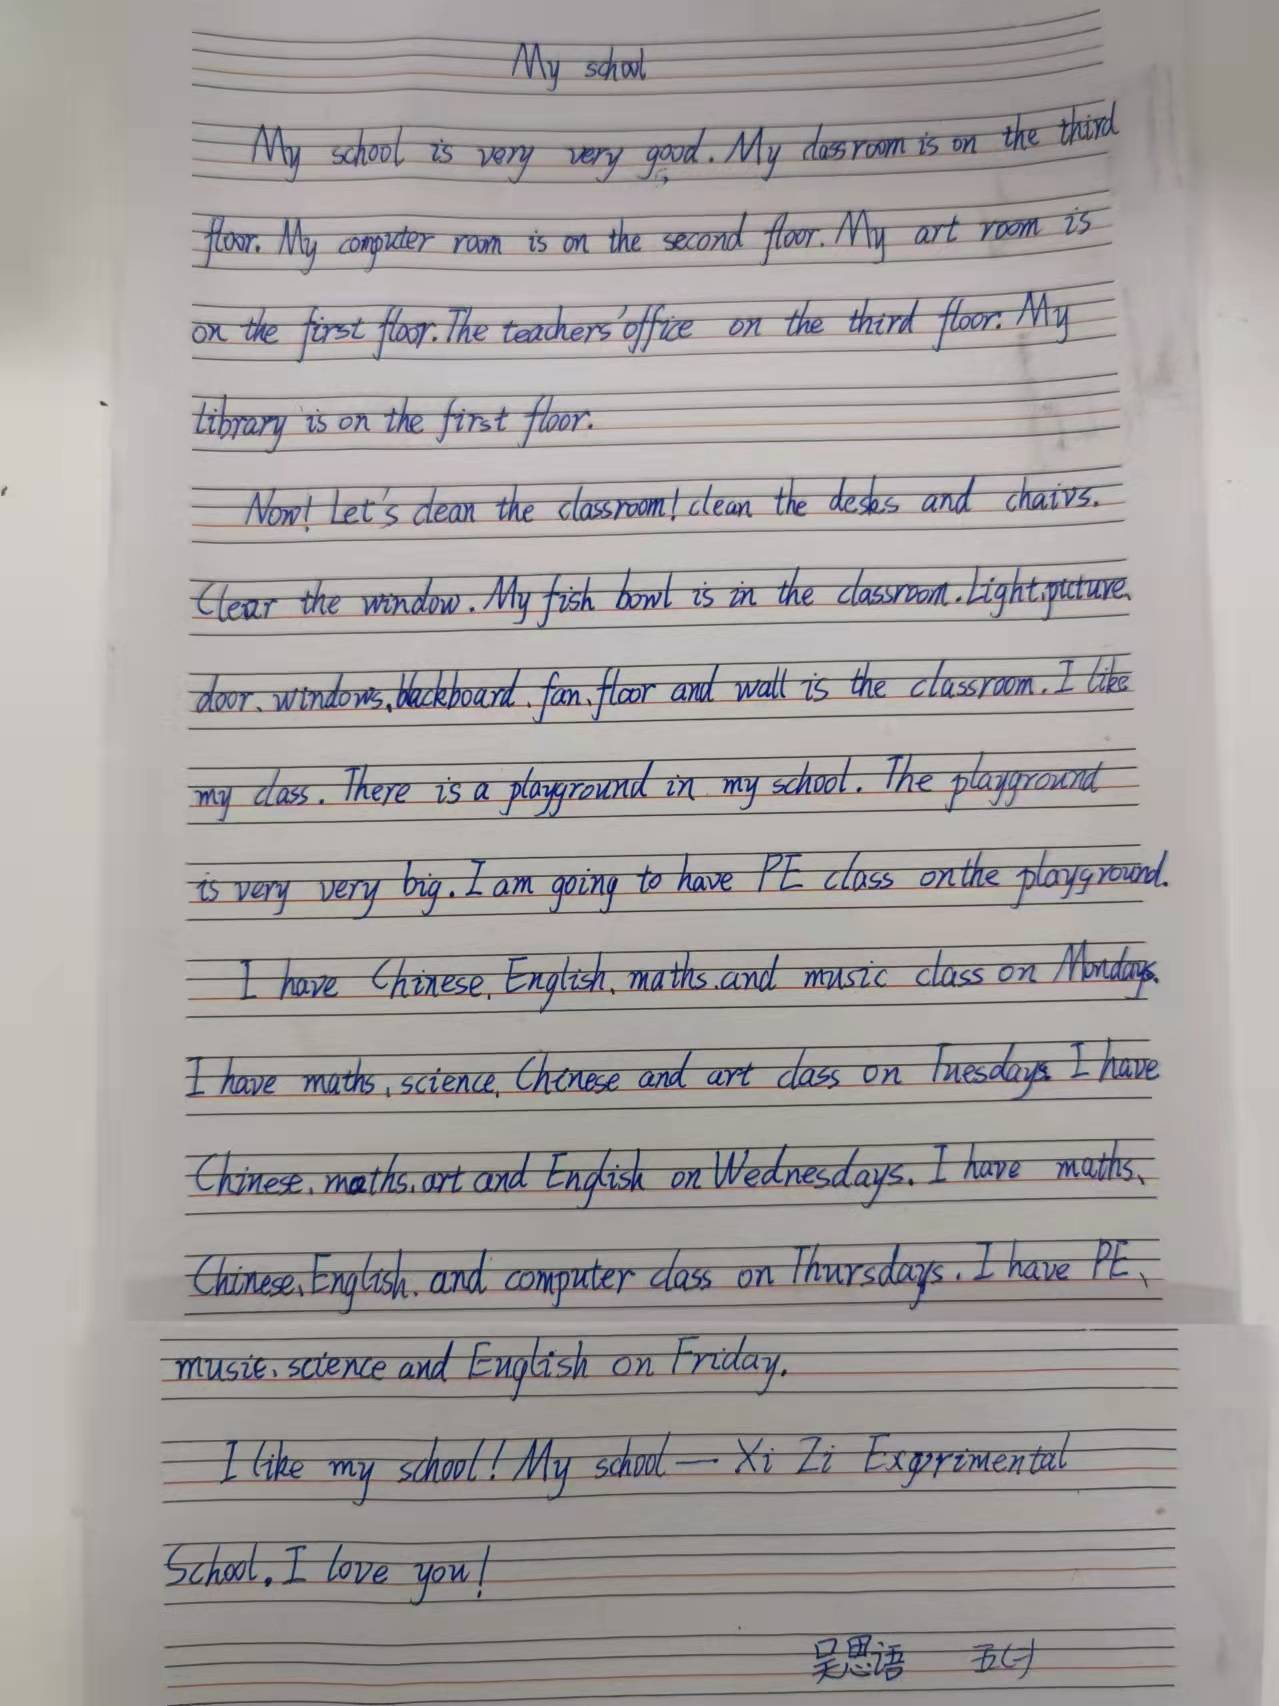 My school
My school is very very good. My classroom is on the third
floor. My computer room is on the second floor. My art room is
on the first floor. The teachers' office on the third floor. My
library is on the first floor.
Now! Let's clean the classroom! clean the desks and chairs.
Clear the window. My fish bowl is in the classroom. Light、picture、
door、windows、blackboard、fan、floor and wall is the classroom. I like
my class. There is a playground in my school. The playground
is very very big. I am going to have PE class on the playground.
I have Chinese、English、maths、and music class on Mondays.
I have maths、science、Chinese and art class on Tuesdays. I have
Chinese、maths、art and English on Wednesdays. I have maths、
Chinese、English、and computer class on Thursdays. I have PE、
music、science and English on Friday.
I like my school! My school — Xi Zi Exprimental
School. I love you!
吴思语 五